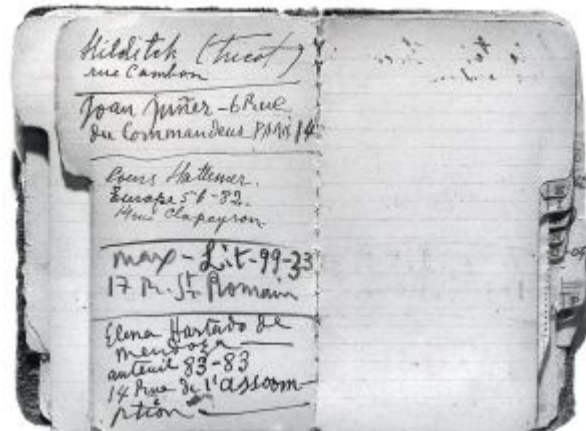 Hilditch (tricot)
rue Cambon
Joan Juñer - 6 Rue
du Commandeur PARIS 14
Cours Hattemer.
Europe 56-82.
14 rue Clapeyron
max - Lit-99-33
17 R. St Romain
Elena Hurtado de
Mendoza
auteuil 83-83
14 Rue de l'assom
ption